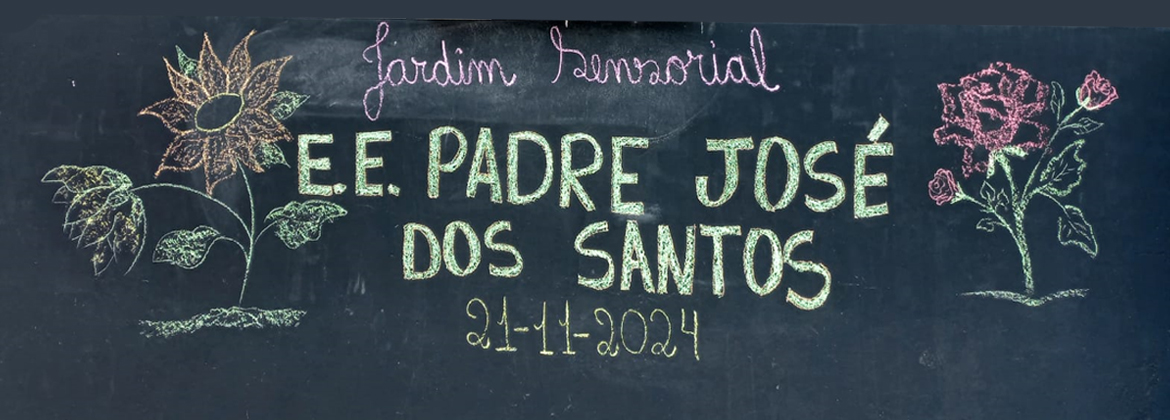 Jardim Sensorial
E.E. PADRE JOSÉ
DOS SANTOS
21-11-2024